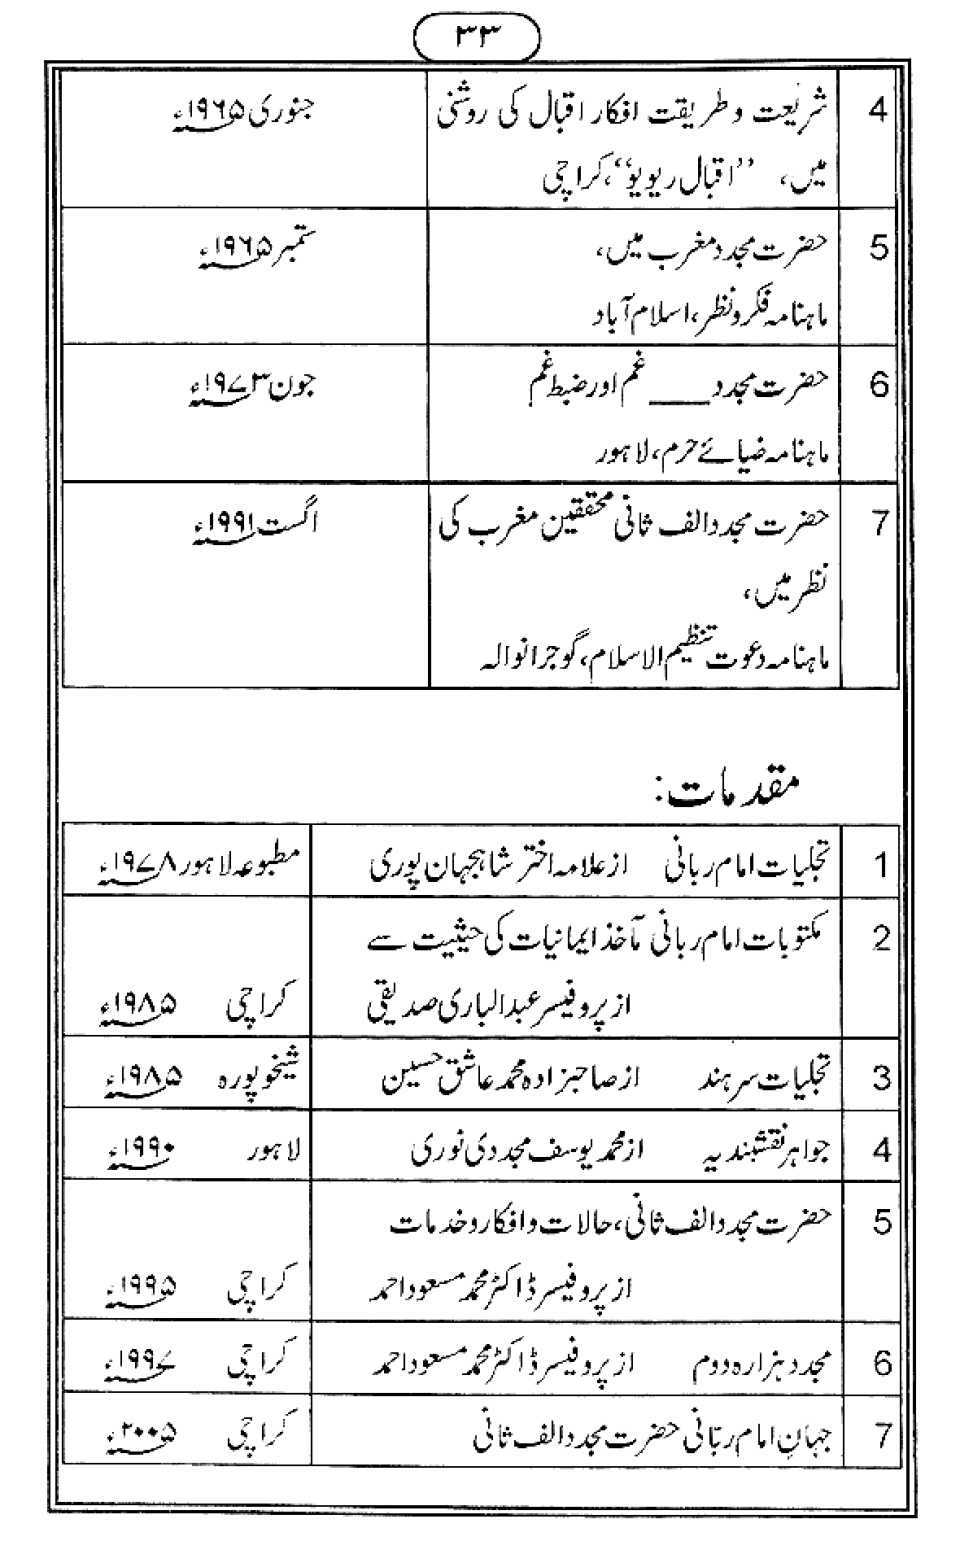 ۳۳
4 شریعت و طریقت افکار اقبال کی روشنی جنوری ۱۹۶۵ء
میں، ’’اقبال ریویو‘‘، کراچی
5 حضرت مجدد مغرب میں، ستمبر ۱۹۶۵ء
ماہنامہ فکر و نظر، اسلام آباد
6 حضرت مجدد ____ غم اور ضبط غم جون ۱۹۷۳ء
ماہنامہ ضیائے حرم، لاہور
7 حضرت مجدد الف ثانی محققین مغرب کی اگست ۱۹۹۱ء
نظر میں،
ماہنامہ دعوت تنظیم الاسلام، گوجرانوالہ
مقدمات:
1 تجلیات امام ربانی از علامہ اختر شاہجہان پوری مطبوعہ لاہور ۱۹۷۸ء
2 مکتوبات امام ربانی مآخذ ایمانیات کی حیثیت سے
از پروفیسر عبدالباری صدیقی کراچی ۱۹۸۵ء
3 تجلیات سرہند از صاحبزادہ محمد عاشق حسین شیخوپورہ ۱۹۸۵ء
4 جواہر نقشبندیہ از محمد یوسف مجددی نوری لاہور ۱۹۹۰ء
5 حضرت مجدد الف ثانی، حالات و افکار و خدمات
از پروفیسر ڈاکٹر محمد مسعود احمد کراچی ۱۹۹۵ء
6 مجدد ہزارہ دوم از پروفیسر ڈاکٹر محمد مسعود احمد کراچی ۱۹۹۷ء
7 جہانِ امام ربّانی حضرت مجدد الف ثانی کراچی ۲۰۰۵ء